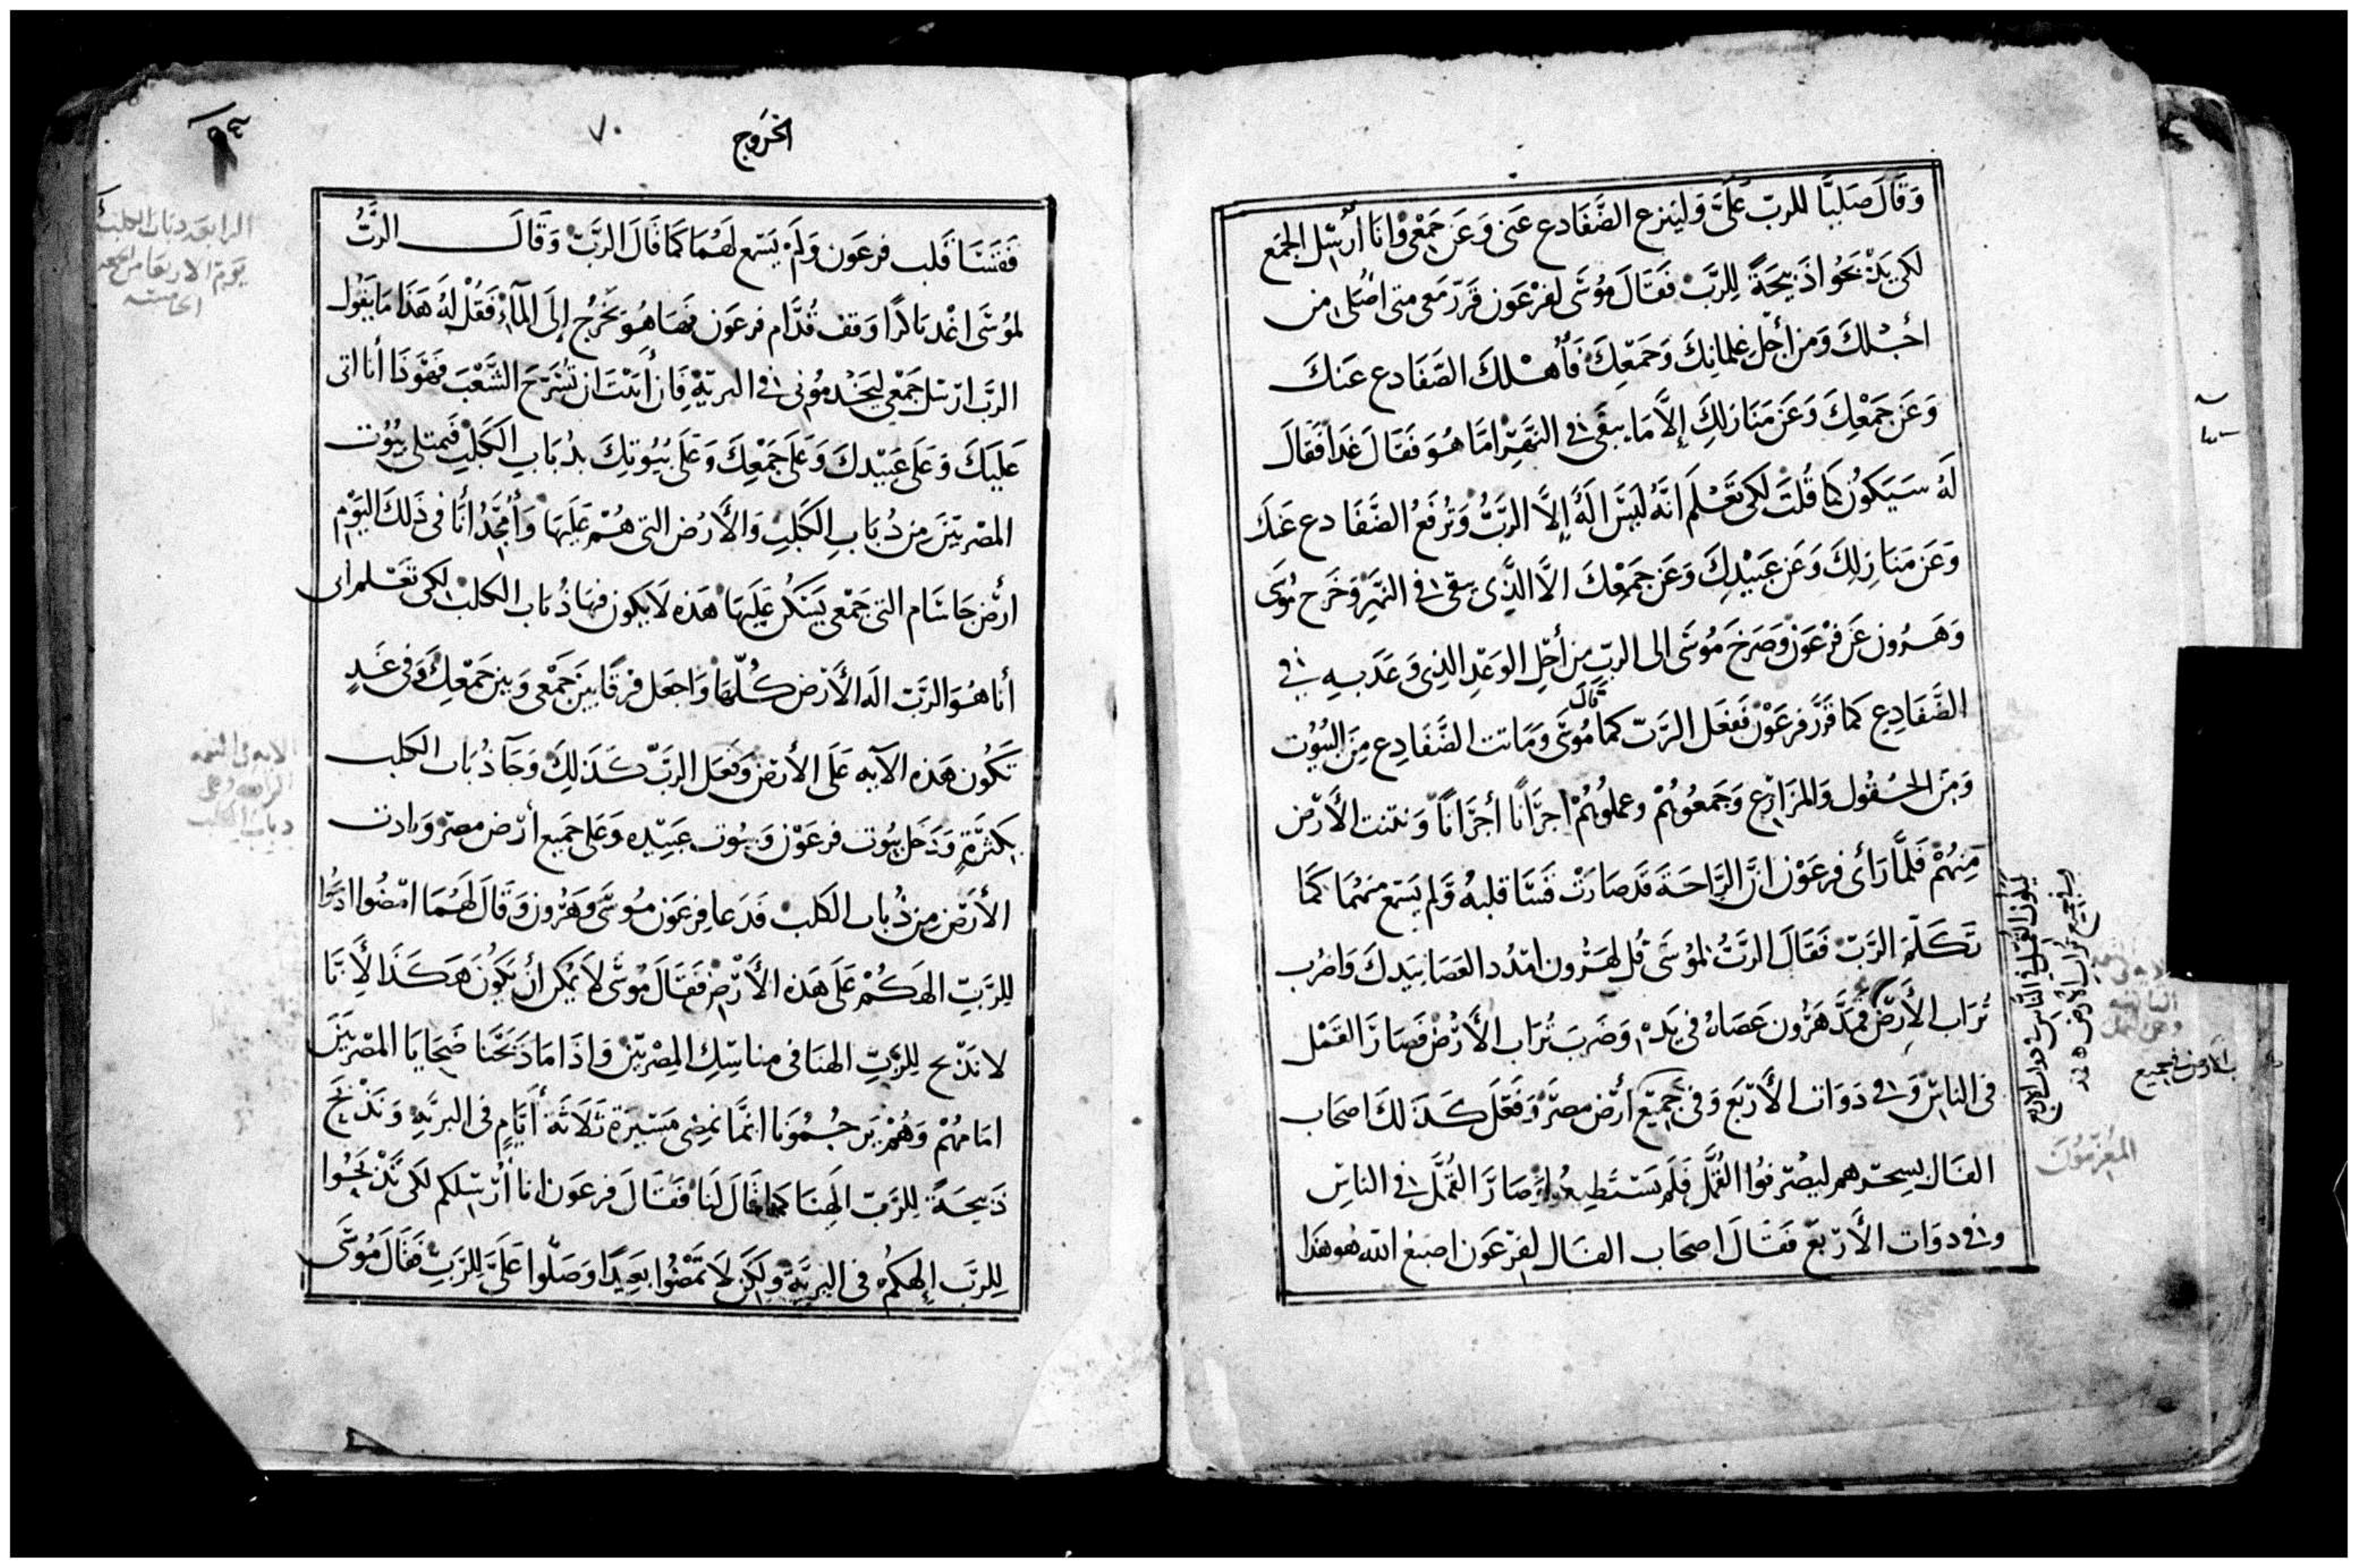 وَقَالَ صَلِّيَا للربّ عَلَىَّ وَلينزع الضَّفَادع عَنى وَعَن جَمْعى وَانَا أُرْسِل الجمَع
لكى يَذْبَحُوا ذَبيحَةً لِلرَّبّ فَقَالَ مُوسَى لفرْعَون قرّر مَعى متى اصَلى من
أجْلكَ وَمن أجْلِ غِلمانِكَ وَجَمْعِكَ فأُهْلك الضَّفَادع عَنكَ
وَعَن جَمْعِكَ وَعَن مَنَازلِكَ إلاَّ مَا يبقَى فى النَّهَر امَّا هُوَ فَقَالَ غَدًا فَقَالَ
لَهُ سَيَكوُن كمَا قُلتَ لكى تَعْلَمَ انَّهُ لَيسَ الَهٌ إلاَّ الرَّبُّ وَتُرفَعُ الضَّفَادع عَنكَ
وَعَن مَنَازِلِكَ وَعَن عَبيْدِكَ وَعَن جَمْعِكَ الاَّ الذَّى يبقى فى النَّهَر وَخَرج مُوسَى
وَهَرُون عَن فرْعَوْن وَصَرخَ مُوسَى الى الربّ من أجْلِ الوَعْدِ الذِى وَعَدَ بهِ فى
الضَّفَادِع كمَا قرَّر فرعَوْن فَفعَل الرَّبّ كمَا قالَ مُوسَى وَمَاتت الضَّفَادِع مِنَ البُيُوت
وَمِنَ الحُقُول وَالمزَارِع وَجَمعُوهُمْ وعملُوهُمْ اجرَانًا أجرَانًا وَنتنت الأَرْض
مِنهُمْ فَلمَّا رَأى فرعَوْن انَّ الرَّاحَةَ قَد صَارَتْ قَسَّا قلبهُ وَلم يَسمَع منهُمَا كمَا
تَكَلَّمَ الرَّبّ فَقَالَ الرَّبُّ لمُوسَى قُل لهَرُون امْدُد العَصَا بيَدكَ وَاضرب
تُرَاب الأَرْضِ فَمَدَّ هَرُون عَصَاهُ فى يَدِهِ وَضَربَ تُرَاب الأَرْض فَصَارَ القَمْل
فى الناسّ وَفى دَوَات الأَرْبَع وَفى جَمِيْع أرْض مصرَ وَفَعَلَ كَذَلكَ اصحَاب
الفال بسِحرهم ليصْرفوُا القُمَّل فَلَمْ يَسْتَطيعُوا وَصَارَ القُمَّل فى الناسِ
وفى دوَات الأَرْبعَ فَقَالَ اصحَاب الفَال لفرْعَون اصبَعُ الله هو هَذَا
ب الارض فى جميع
المعزمُونَ
الخرَوج
٧٠
فَقَسَا قَلب فرعَون وَلَمْ يَسمَع لَهُمَا كمَا قَالَ الرَّبّ وَقَالَ الرَّبُّ
لمُوسَى اغْد بَاكرًا وَقف قُدَّام فرعَون فهَا هُوَ يَخْرُج إلَى المآءِ فَقُل لهُ هَذَا مَا يَقُول
الرَّب ارْسل جَمْعى ليَخْدمُونى فى البريّةِ فَان أَبَيْتَ ان تُسَرّحَ الشَّعْبَ فَهَوَذَا أنا اتى
عَليَكَ وَعَلى عَبيْدكَ وَعَلَى جَمْعِكَ وَعَلَى بُيُوتِكَ بذُبَابِ الكَلْبِ فَيمتلى بيُوُت
المصْريّينَ مِن ذُبَابِ الكَلبِ وَالأَرْض التى هُمْ عَليَهَا وَأُمَجّدُ أَنَا فى ذَلكَ اليَوْم
ارْض جَاسَام التى جَمْعى يَسَكن عَليَهَا هَذه لاَ يكون فيهَا ذُباب الكلب لكى تَعْلم انى
أنا هُوَ الرَّبّ الَه الأَرْض كُلّهَا وَاجعَل فرْقًا بيَن جَمْعى وَبين جَمْعِكَ وَفى غَدٍ
تَكُون هَذه الآيه عَلَى الأَرْض وَفَعَل الربّ كَذَلِكَ وَجَآ ذُبَاب الكلب
بِكثرَةٍ وَدَخَل بيُوت فرعَوْن وَبيُوت عَبيْده وَعَلى جَميع أرْض مصرَ وَبادت
الأَرْض مِن ذُباب الكَلب فَدَعَا فِرعَون مُوسَى وَهَرُون وَقَالَ لَهُمَا امْضُوا اذبحُوا
لِلرَّبِّ الهَكُمْ عَلَى هَذه الأَرْض فَقَالَ مُوسَى لاَ يُمكِن أن يَكوُن هَكَذَا لأَنَّا
لا نَذْبح لِلرَّبِّ الهنَا فى مناسِكِ المِصْريّيْن وَاذَا مَا ذَبَحْنَا ضَحَايَا المصْريّيَن
امَامهُمْ وَهُمْ يَرجُمُونَا انمَّا نمضِى مَسيْرَة ثَلاَثَة أيَّامٍ فى البريَّه وَنَذْبَح
ذَبيحَةً لِلرَّبّ الهنَا كمَا قَالَ لنَا فَقَالَ فرعَون انا أُرْسلكم لكى تَذْبَحُوا
لِلرَّبّ إلهكُم فى البريَّة وَلكن لاَ تمضُوا بَعِيدًا وَصَلُّوا عَلَىَّ لِلرَّبِّ فَقَالَ مُوسَى
الرابعه دباب الكلب
يَوم الاربعا من الجمعه
الخامسه